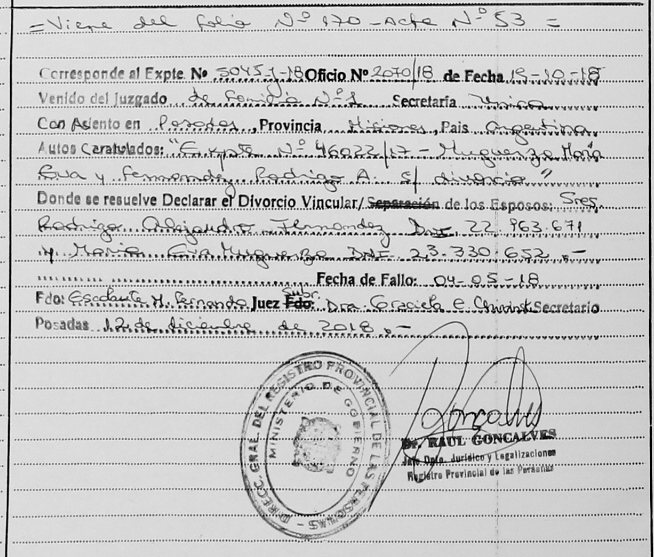 = Viene del folio Nº 170 - Acta Nº 53 =
Corresponde al Expte. Nº 50451-18 Oficio Nº 2070/18 de Fecha 15-10-18
Venido del Juzgado de Familia Nº 1 Secretaría Única
Con Asiento en Posadas, Provincia Misiones, País Argentina
Autos Caratulados: "Expte Nº 46022/17 - Muguerza María
Eva y Fernandez Rodrigo A. S/ divorcio"
Donde se resuelve Declarar el Divorcio Vincular/Separación de los Esposos: Sres
Rodrigo Alejandro Fernandez DNI 22.963.671
y María Eva Muguerza DNI 23.330.652.-
Fecha de Fallo: 04-05-18
Fdo: Escalante H. Fernando Juez Fdo: Subr. Dra. Graciela C. Secretario
Posadas 12 de diciembre de 2018.-
DIRECC. GRAL. DEL REGISTRO PROVINCIAL DE LAS PERSONAS -
MINISTERIO DE GOBIERNO
Goncalves
Dr. RAUL GONCALVES
Jefe Dpto. Jurídico y Legalizaciones
Registro Provincial de las Personas